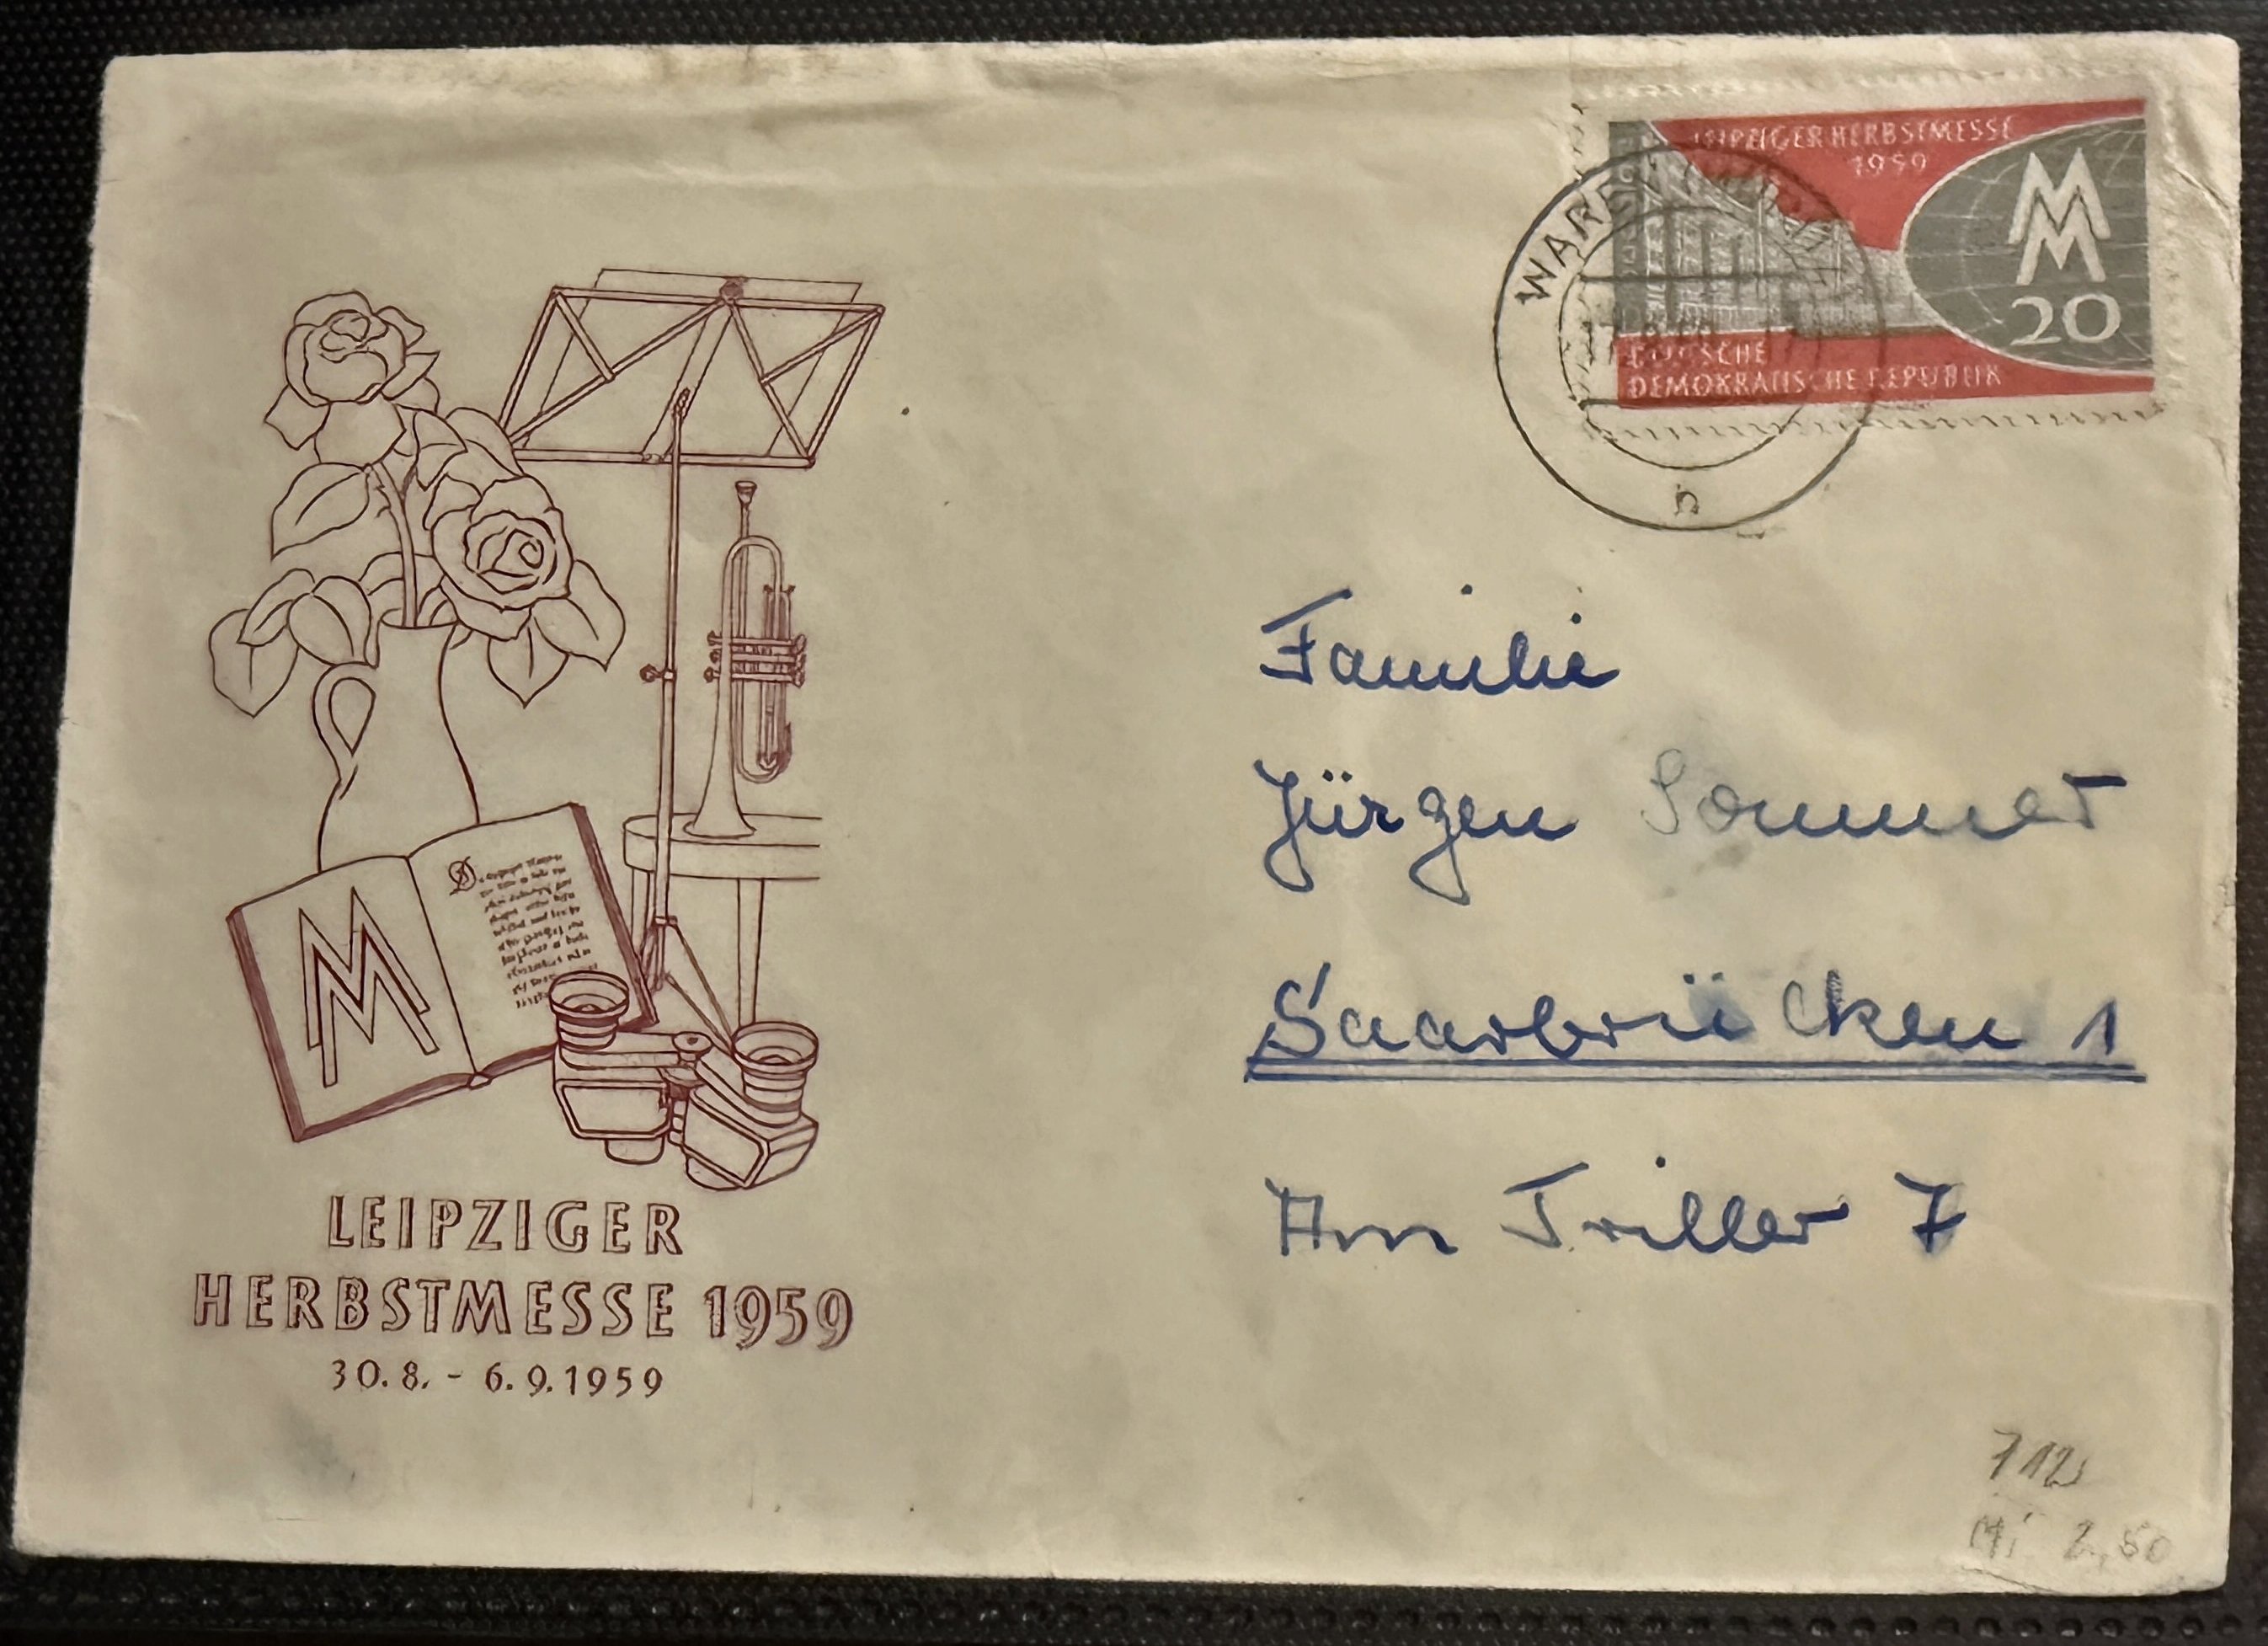 LEIPZIGER HERBSTMESSE
1959
MM
20
DEUTSCHE
DEMOKRATISCHE REPUBLIK
n
Familie
Jürgen Sommer
Saarbrücken 1
Am Triller 7
MM
LEIPZIGER
HERBSTMESSE 1959
30.8. - 6.9.1959
712
Mi 2,50